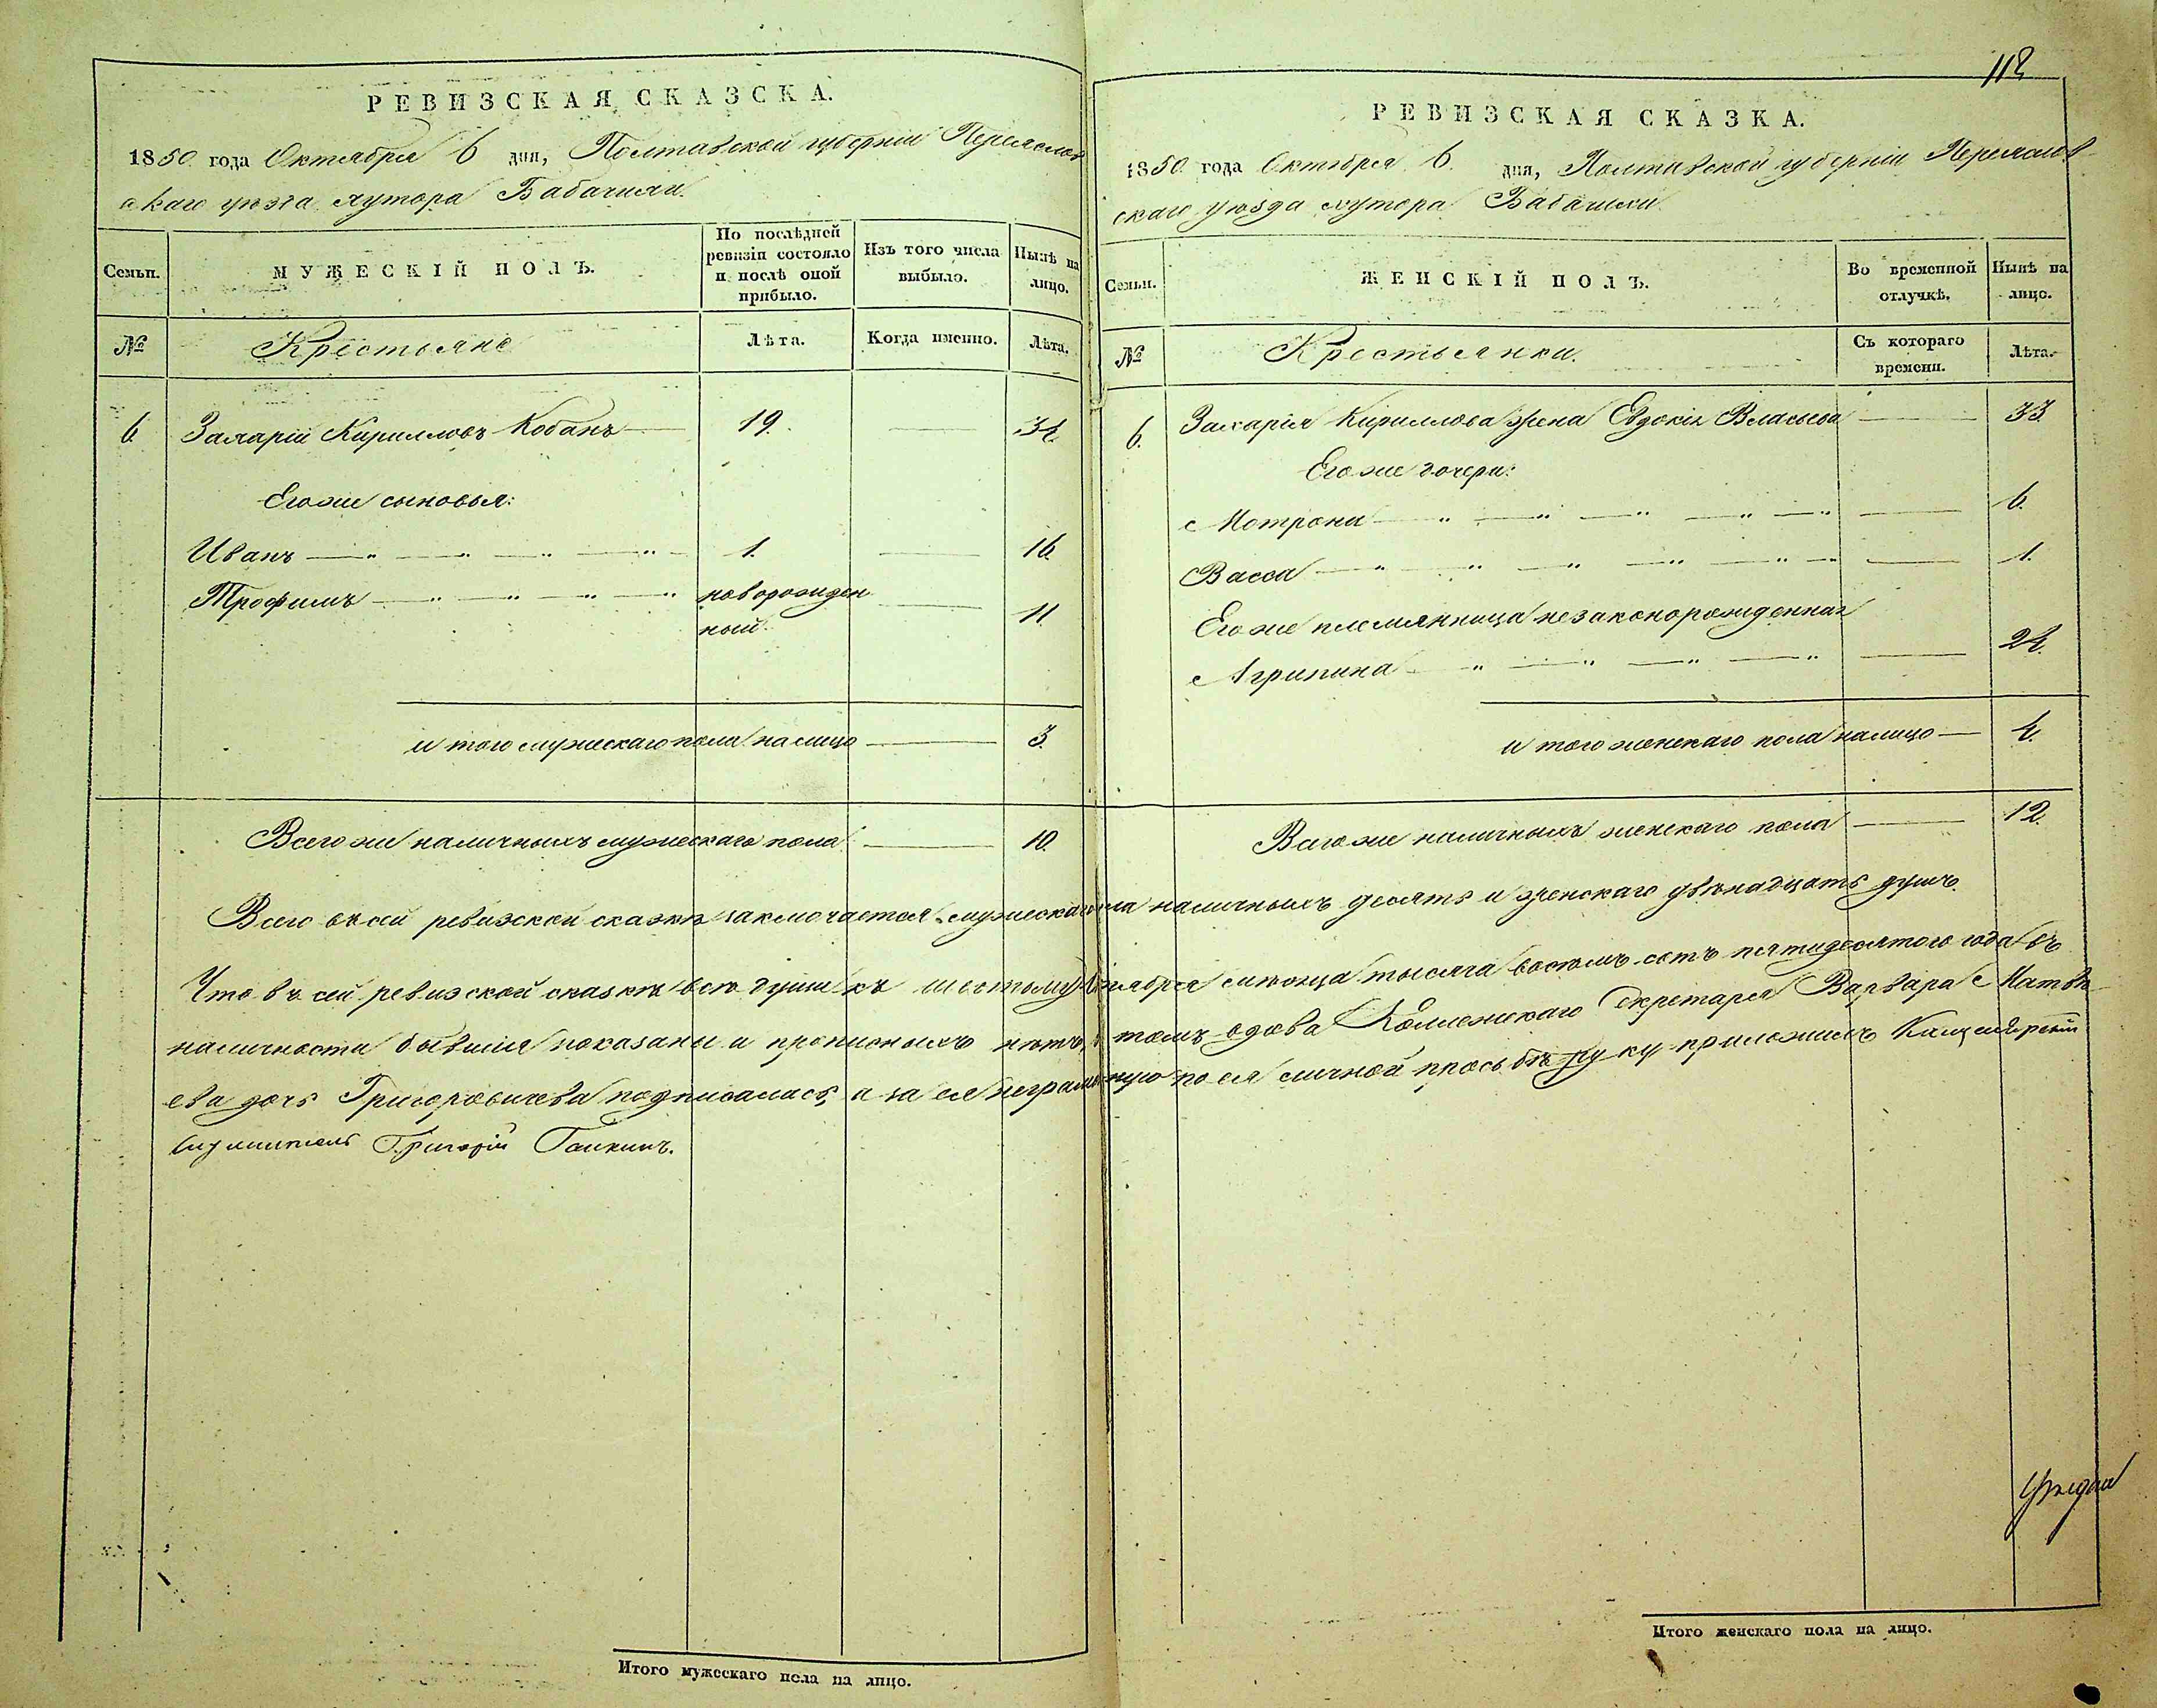 РЕВИЗСКАЯ СКАЗСКА.
1850 года Октября 6 дня, Полтавской губернiи Переяслов
скаго уѣзда хутора Бабачихи.
Семьи.
МУЖЕСКІЙ ПОЛЪ.
По послѣдней ревизіи состояло и послѣ оной прибыло.
Изъ того числа выбыло.
Нынѣ на лицо.
№
Крестьяне
Лѣта.
Когда именно.
Лѣта.
6. Захарій Кирилловъ Кобанъ — 19. — 34.
Его же сыновья:
Иванъ — " — " — " — " — 1. — 16.
Трофимъ — " — " — " — " новорожден — 11.
ный.
и того мужескаго пола налицо — 3.
Всего же наличныхъ мужескаго пола — 10.
112
РЕВИЗСКАЯ СКАЗКА.
1850 года Октября 6. дня, Полтавской губерніи Переяслов-
скаго уѣзда хутора Бабачихи.
Семьи.
ЖЕНСКІЙ ПОЛЪ.
Во временной отлучкѣ.
Нынѣ на лицо.
№
Крестьянки.
Съ котораго времени.
Лѣта.
6. Захарія Кириллова жена Евдокія Власьева — 33.
Его же дочери:
Мотрона — " — " — " — " — " — 6.
Васса — " — " — " — " — " — 1.
Его же племянница незаконорожденная
Агрипина — " — " — " — " — 24.
и того женскаго пола налицо — 4.
Всего же наличныхъ женскаго пола — 12.
Всего въ сей ревизской сказкѣ заключается мужескаго пола наличныхъ десять и женскаго двѣнадцать душъ.
Что въ сей ревизской сказкѣ всѣ души къ шестому Октября мѣсяца тысяча восемь сотъ пятидесятого года въ
наличности бывшія показаны и прописныхъ нѣтъ, в томъ вдова Коллежскаго Секретаря Варвара Матвѣ-
ева дочь Григоровичева подписалась, а за ея неграмотную по ея личной просьбѣ руку приложилъ Канцелярскій
служитель Григорій Галкинъ.
Итого мужескаго пола на лицо.
Итого женскаго пола на лицо.